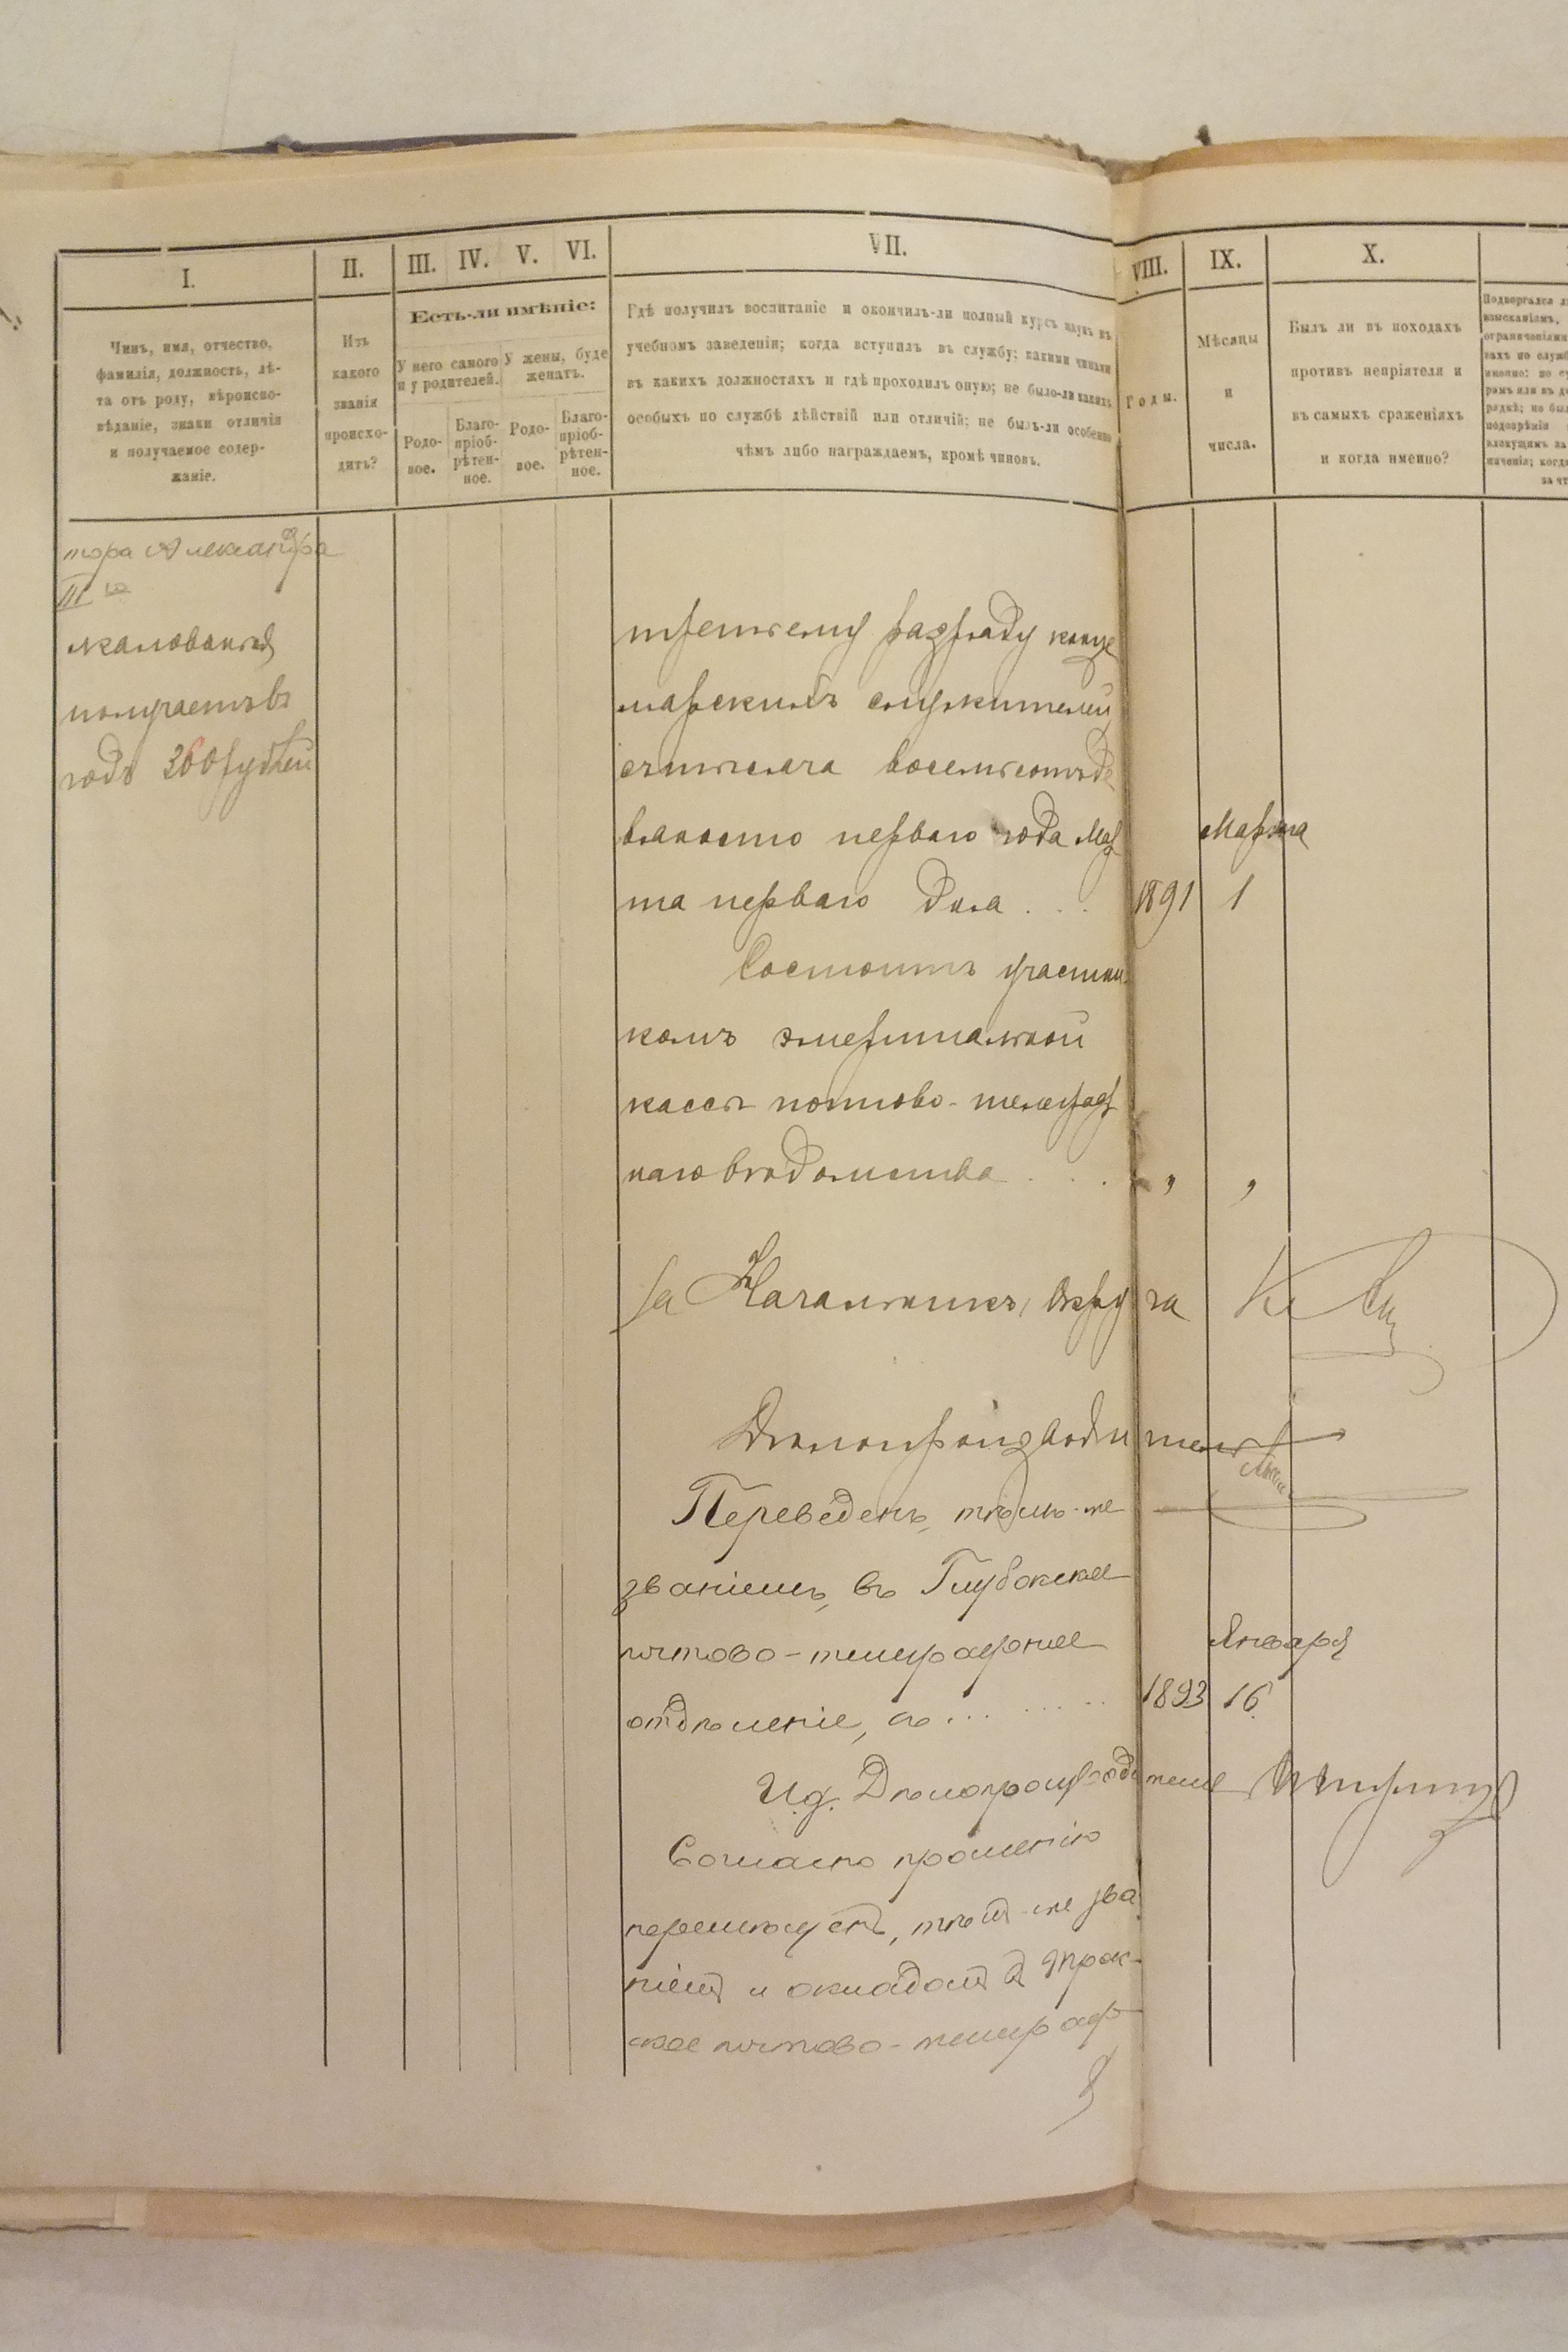 I. II. III. IV. V. VI. VII. VIII. IX. X.
Чинъ, имя, отчество,
фамилія, должность, лѣ-
та отъ роду, вѣроиспо-
вѣданіе, знаки отличія
и получаемое содер-
жаніе.
Изъ
какого
званія
происхо-
дитъ?
Есть-ли имѣніе:
У него самого
и у родителей.
У жены, буде
женатъ.
Родо-
вое.
Благо-
пріоб-
рѣтен-
ное.
Родо-
вое.
Благо-
пріоб-
рѣтен-
ное.
Гдѣ получилъ воспитаніе и окончилъ-ли полный курсъ наукъ въ
учебномъ заведеніи; когда вступилъ въ службу; какими чинами
въ какихъ должностяхъ и гдѣ проходилъ оную; не было-ли какихъ
особыхъ по службѣ дѣйствій или отличій; не былъ-ли особенно
чѣмъ либо награждаемъ, кромѣ чиновъ.
Годы.
Мѣсяцы
и
числа.
Былъ ли въ походахъ
противъ непріятеля и
въ самыхъ сраженіяхъ
и когда именно?
Подвергался л
взысканіямъ,
ограниченіями
вахъ по служб
именно: по су
ромъ или въ д
рядкѣ; не бы
подозрѣнія
влекущимъ за
ниченія; когд
за чт
тора Александра
III го
жалованья
получаетъ въ
годъ 360 рублей
третьему разряду канце
лярскихъ служителей,
съ тысяча восемьсотъ де
вяносто перваго года Мар
та перваго дня . . .
Марта
1891 1
Состоитъ участни
комъ эмеритальной
кассы почтово-телеграф
наго вѣдомства . . . „ „
За Начальника Округа
Дѣлопроизводитель
Переведенъ, тѣмъ-же
званіемъ, въ Глубокское
почтово-телеграфное
отдѣленіе, съ . . .
Января
1893 16
И.д. Дѣлопроизводителя
Согласно прошенію
перемѣщенъ, тѣмъ-же зва
ніемъ и окладомъ въ
ское почтово-телеграф